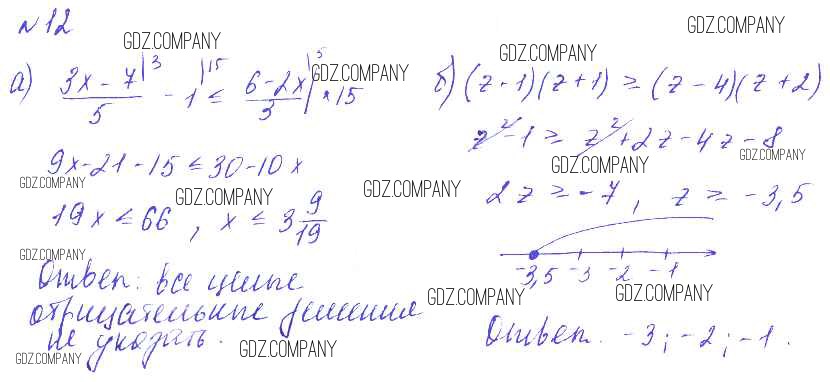 №12
а) (3x - 7)/5 |3 - 1 |15 ≤ (6-2x)/3 |5 × 15
9x-21-15≤30-10x
19x≤66, x≤3 9/19
Ответ: все целые
отрицательные решения
не указать.
б) (z-1)(z+1) ≥ (z-4)(z+2)
z²-1 ≥ z²+2z-4z-8
2z≥-7, z≥-3,5
-3,5 -3 -2 -1
Ответ. -3; -2; -1.
GDZ.COMPANY
GDZ.COMPANY
GDZ.COMPANY
GDZ.COMPANY
GDZ.COMPANY
GDZ.COMPANY
GDZ.COMPANY
GDZ.COMPANY
GDZ.COMPANY
GDZ.COMPANY
GDZ.COMPANY
GDZ.COMPANY
GDZ.COMPANY
GDZ.COMPANY